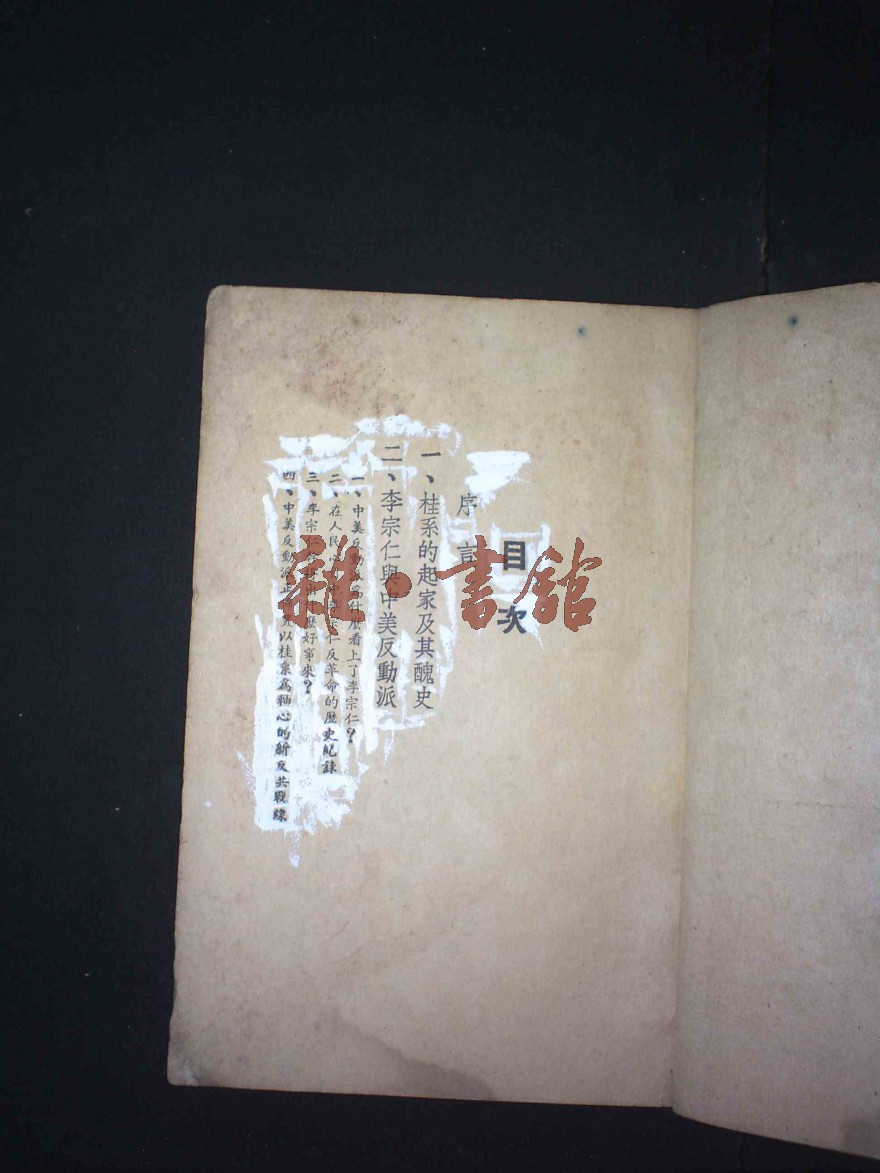 目次
序言
一、桂系的起家及其醜史
二、李宗仁與中美反動派
一、中美反動派爲什麼看上了李宗仁?
二、在人民心 李宗仁反革命的歷史紀錄
三、李宗仁 麼好事來?
四、中美反動派正 以桂系爲軸心的新反共戰線
雜·書館